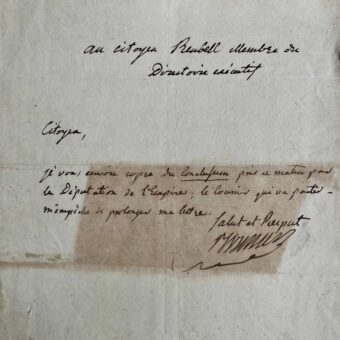 au citoyen Reubell Membre du
Directoire exécutif
Citoyen,
je vous envoie copie du Conclusum pris ce matin par
la Députation de l'Empire; le Courier qui va partir
m'empêche de prolonger ma lettre.
Salut et Respect